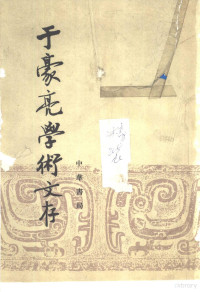 于豪亮學術文存
中華書局